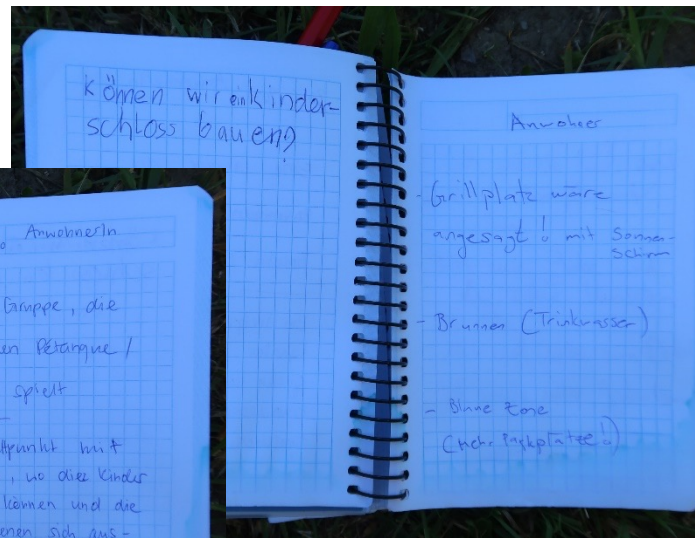 Können wir ein Kinder-
schloss bauen?
Anwohner
- Grillplatz wäre
angesagt! mit Sonnen-
schirm
- Brunnen (Trinkwasser)
- Blaue Zone
(mehr Parkplätze!)
AnwohnerIn
Gruppe, die
en Pétanque /
spielt
punkt mit
, wo die Kinder
können und die
enen sich aus-